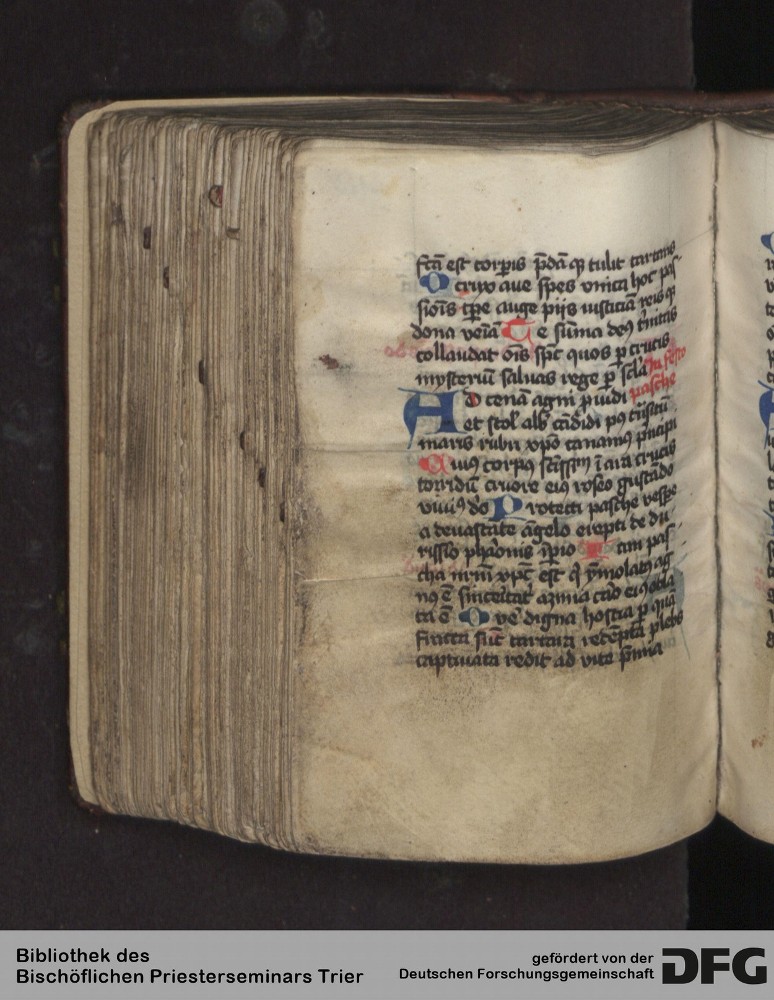 fcā est corpis p̄dā q̨ tulit tartaris
O crux aue spes vnica hoc pas-
siois tp̄e auge pijs iusticiā reis q̨
dona veiā Te sūma deꝰ t̓nitas
collaudat oīs sp̄c quos p crucis
mysteriū saluas rege p scl̄a In festo
pasche
AD cenā agni puidi
et stol̓ alb̓ cādidi pꝰ t̓nsitū
maris rubri xp̄o canamꝰ p̓ncipi
Cuiꝰ corpꝰ sc̄issm̄ ī ara crucis
torridū cruore eiꝰ roseo gustādo
viuiꝰ do Protecti pasche vesp̄e
a deuastāte āgelo erepti de du-
rissīo pharonis īpio Iam pas-
cha nr̄m xp̄c est q̓ ymolatꝰ ag
nꝰ ē sinceitat̓ azima caro eiꝰ obla
ta ē O ve̓ digna hostia p quā
fracta sūt tartara redēpta plebs
captiuata redit ad vite p̄mia
Bibliothek des
Bischöflichen Priesterseminars Trier
gefördert von der
Deutschen Forschungsgemeinschaft DFG